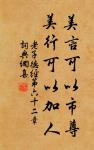 美言可以市尊
美行可以加人
老子德經第六十二章
詞典網集